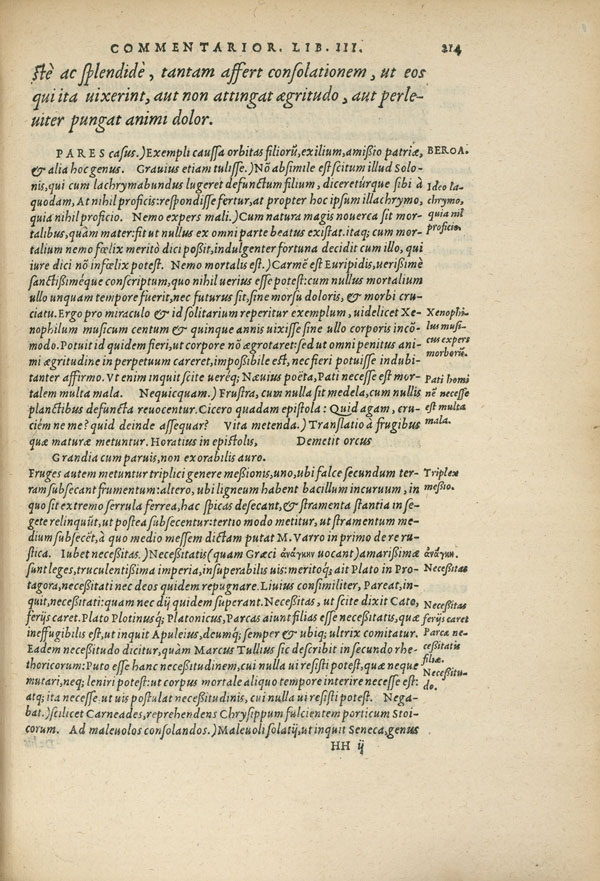 COMMENTARIOR. LIB. III. 214
stè ac splendidè, tantam affert consolationem, ut eos
qui ita uixerint, aut non attingat ægritudo, aut perle-
uiter pungat animi dolor.
PARES casus.) Exempli caussa orbitas filiorũ, exilium, amißio patriæ, BEROA.
& alia hoc genus. Grauius etiam tulisse.) Nõ absimile est scitum illud Solo-
nis, qui cum lachrymabundus lugeret defunctum filium, diceretúrque sibi à Ideo la-
quodam, At nihil proficis: respondisse fertur, at propter hoc ipsum illachrymo, chrymo,
quia nihil proficio. Nemo expers mali.) Cum natura magis nouerca sit mor- quia nil
talibus, quàm mater: fit ut nullus ex omni parte beatus existat. itaq; cum mor- proficio.
talium nemo fœlix meritò dici poßit, indulgenter fortuna decidit cum illo, qui
iure dici nõ infœlix potest. Nemo mortalis est.) Carmẽ est Euripidis, uerißimè
sanctißiméque conscriptum, quo nihil uerius esse potest: cum nullus mortalium
ullo unquam tempore fuerit, nec futurus sit, sine morsu doloris, & morbi cru-
ciatu. Ergo pro miraculo & id solitarium reperitur exemplum, uidelicet Xe- Xenophi-
nophilum musicum centum & quinque annis uixisse sine ullo corporis incõ- lus musi-
modo. Potuit id quidem fieri, ut corpore nõ ægrotaret: sed ut omni penitus ani cus expers
mi ægritudine in perpetuum careret, impoßibile est, nec fieri potuisse indubi- morborũ.
tanter affirmo. Vt enim inquit scite uereq; Næuius poëta, Pati necesse est mor- Pati homi
talem multa mala. Nequicquam.) Frustra, cum nulla sit medela, cum nullis nẽ necesse
planctibus defuncta reuocentur. Cicero quadam epistola: Quid agam, cru- est multa
ciém ne me? quid deinde assequar? Vita metenda.) Translatio à frugibus mala.
quæ maturæ metuntur. Horatius in epistolis, Demetit orcus
Grandia cum paruis, non exorabilis auro.
Fruges autem metuntur triplici genere meßionis, uno, ubi falce secundum ter- Triplex
ram subsecant frumentum: altero, ubi ligneum habent bacillum incuruum, in meßio.
quo sit extremo serrula ferrea, hac spicas desecant, & stramenta stantia in se-
gete relinquũt, ut postea subsecentur: tertio modo metitur, ut stramentum me-
dium subsecẽt, à quo medio messem dictam putat M. Varro in primo de re ru-
stica. Iubet necessitas.) Neceßitatis (quam Græci ἀνάγκην uocant) amarißimæ ἀνάγκη.
sunt leges, truculentißima imperia, insuperabilis uis: meritoq; ait Plato in Pro- Neceßitas
tagora, neceßitati nec deos quidem repugnare. Liuius consimiliter, Pareat, in-
quit, neceßitati: quam nec dij quidem superant. Neceßitas, ut scite dixit Cato, Neceßitas
ferijs caret. Plato Plotinusq; Platonicus, Parcas aiunt filias esse neceßitatis, quæ ferijs caret
ineffugibilis est, ut inquit Apuleius, deumq; semper & ubiq; ultrix comitatur. Parcæ ne-
Eadem necessitudo dicitur, quàm Marcus Tullius sic describit in secundo rhe- ceßitatis
thoricorum: Puto esse hanc necessitudinem, cui nulla ui resisti potest, quæ neque filiæ.
mutari, neq; leniri potest: ut corpus mortale aliquo tempore interire necesse est: Neceßitu-
atq; ita necesse ut uis postulat neceßitudinis, cui nulla ui resisti potest. Nega- do.
bat.) scilicet Carneades, reprehendens Chrysippum fulcientem porticum Stoi-
corum. Ad maleuolos consolandos.) Maleuoli solatij, ut inquit Seneca, genus
HH ij